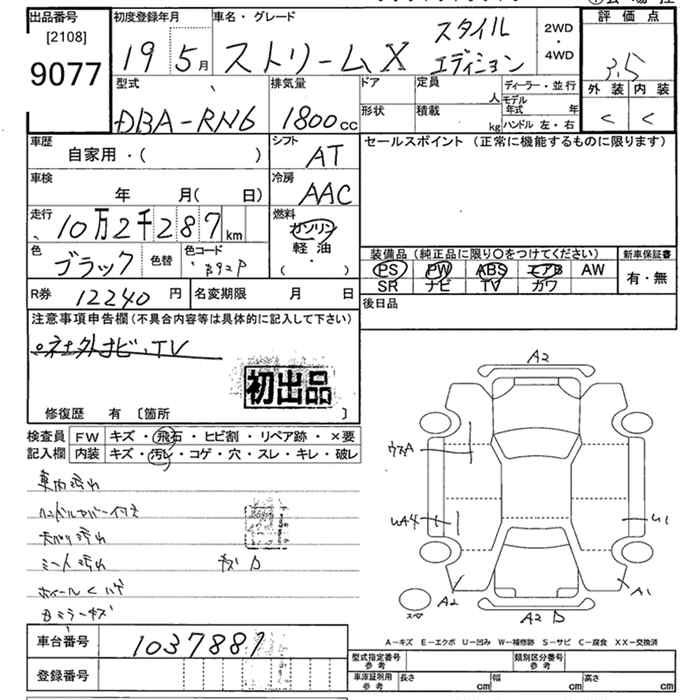 出品番号 初度登録年月 車名・グレード 評価点
[2108] 19 5月 ストリーム X スタイル エディション 2WD・4WD 3.5
9077
型式 排気量 ドア 定員 人 ディーラー・並行 外装 内装
DBA-RN6 1800cc 形状 積載 kg モデル年式 年 ハンドル 左・右 C C
車歴 自家用・( ) シフト AT セールスポイント (正常に機能するものに限ります)
車検 年 月( 日) 冷房 AAC
走行 10万2千287km 燃料 ガソリン 軽油 ( ・ )
色 ブラック 色替 色コード B92P 装備品 (純正品に限り○をつけてください) 新車保証書
PS PW ABS エアB AW 有・無
R券 12240円 名変期限 月 日 SR ナビ TV カワ
後日品
注意事項申告欄 (不具合内容等は具体的に記入して下さい)
社外ナビ、TV
初出品
修復歴 有 [箇所 ]
検査員 FW キズ・飛石・ヒビ割・リペア跡・×要
記入欄 内装 キズ・汚レ・コゲ・穴・スレ・キレ・破レ
車内汚れ
ハンドルカバーイタミ
天バリ汚れ
シート汚れ キズ
ホイールくハゲ
ミラーキズ
A2
ウスA
UA4
U1
A2
A1
スペア
A2
A-キズ E-エクボ U-凹み W-補修跡 S-サビ C-腐食 XX-交換済
車台番号 1037881
登録番号
型式指定番号 参考 類別区分番号 参考
車庫証明用 参考 長さ cm 幅 cm 高さ cm